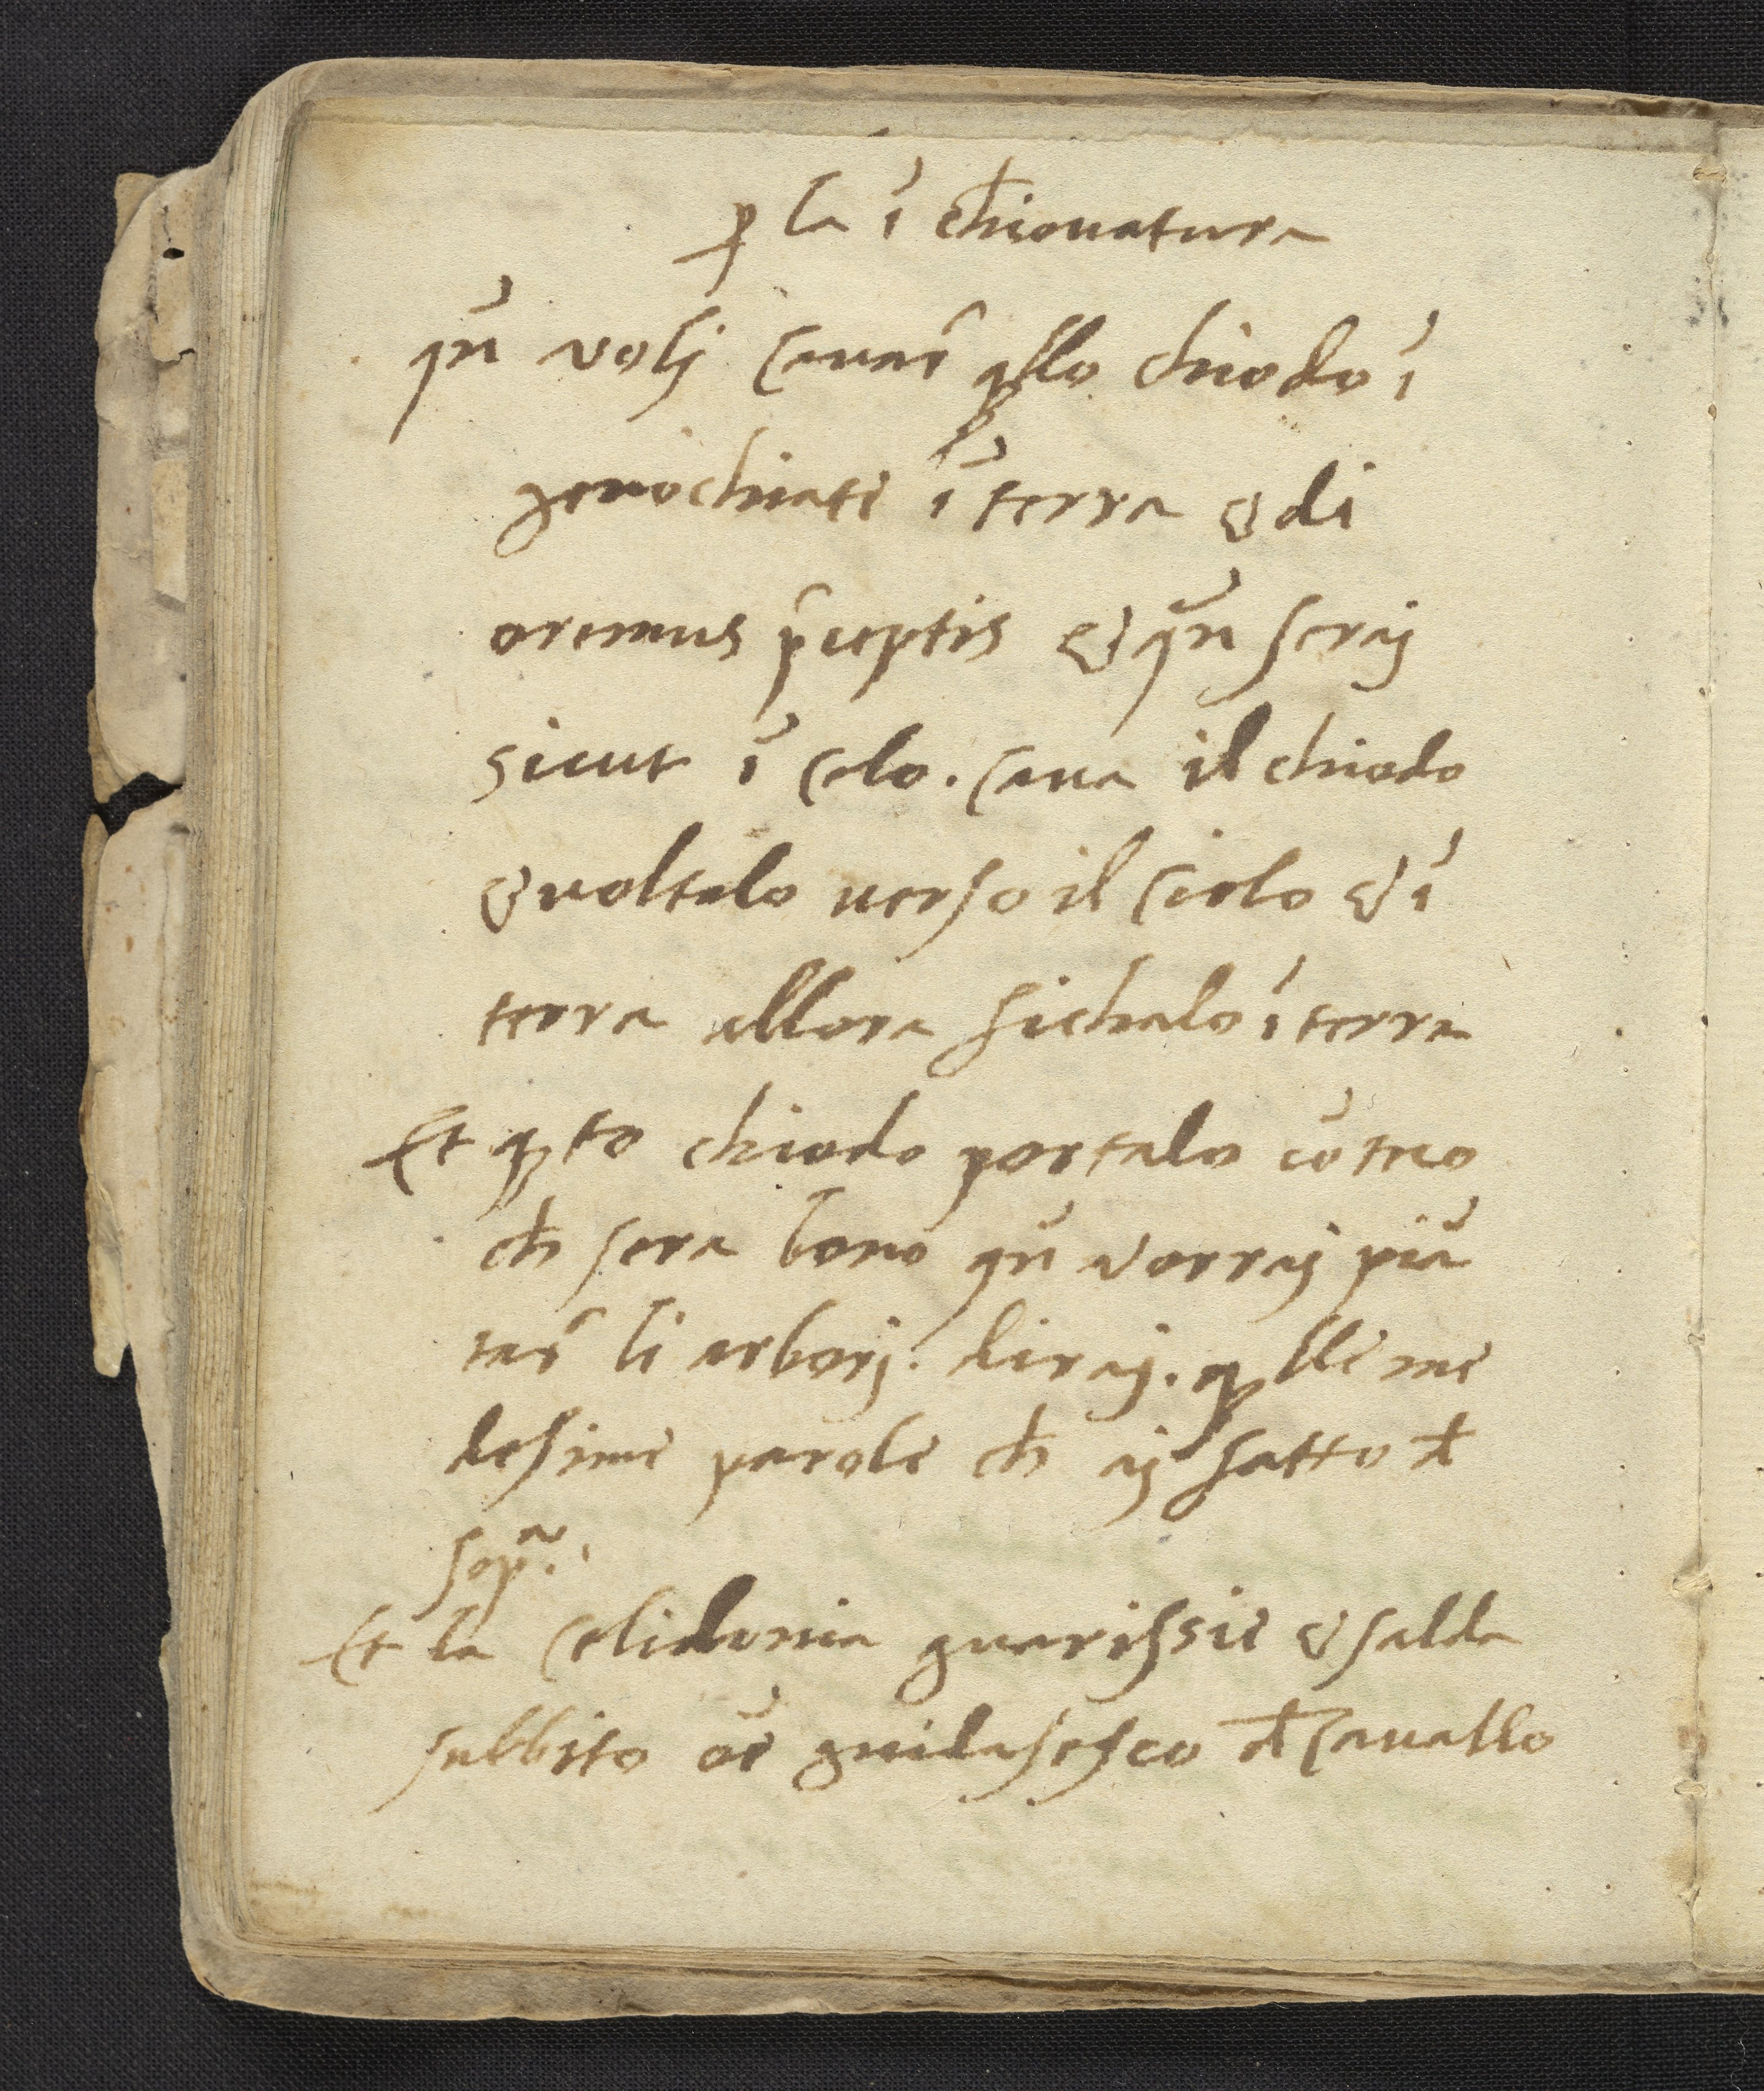 ꝑ la ī chiouatura
qn̄ volj cauar̄ qllo chiodo ī
genochiate ī terra & di
oremus p̄ceptis & qn̄ seraj
sicut ī celo. caua il chiodo
& uoltalo uerso il cielo & ī
terra allora fichalo ī terra
Et qsto chiodo portalo cō teco
cħ sera bono qn̄ vorraj piā
tar̄ li arborj. diraj. qlle me
desime parole cħ aj fatto đ
sopᵃ.
Et la celidonia guarissie & salda
subbito
đ cauallo